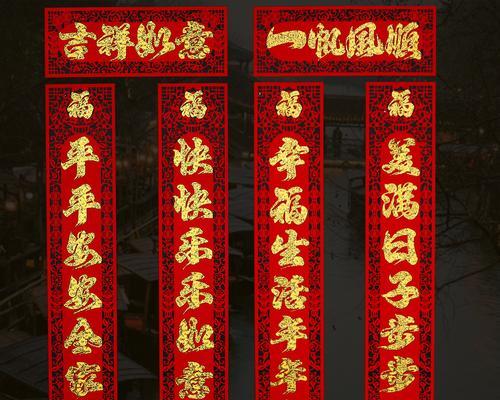 吉祥如意
一帆風順
福
平平安安全家
福
快快乐乐如意
福
幸福生活年年
福
美满日子步步